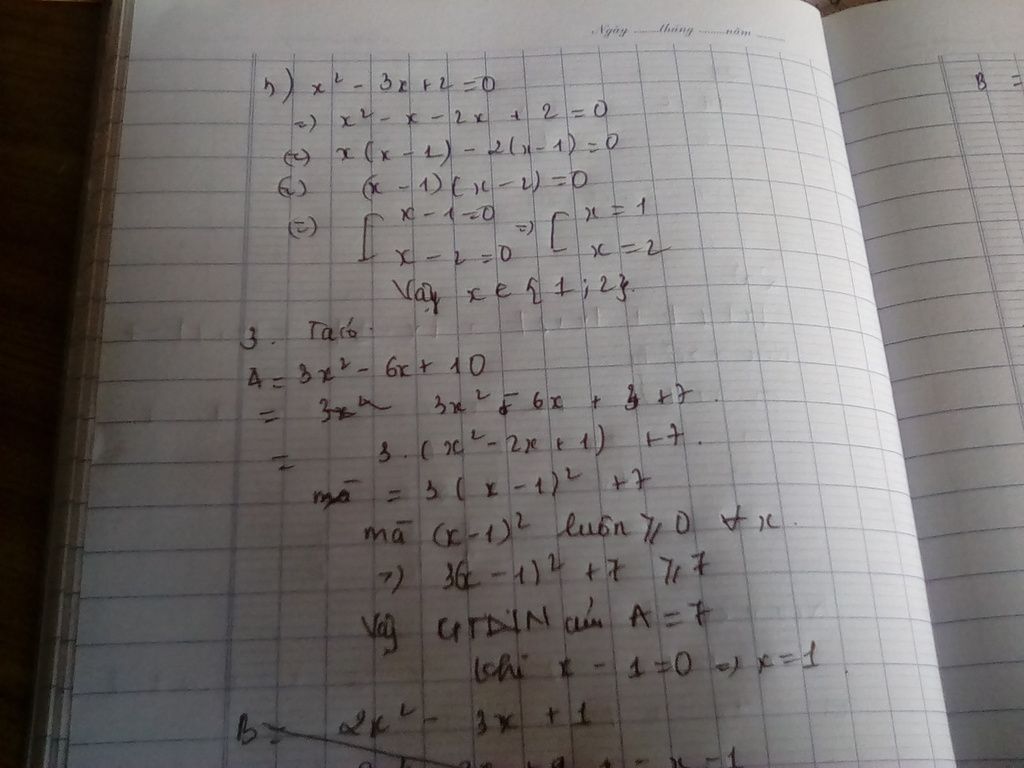 Ngày ......tháng ......năm ......
h) x² - 3x + 2 = 0
=> x² - x - 2x + 2 = 0
(=) x(x - 1) - 2(x - 1) = 0
(=) (x - 1)(x - 2) = 0
(=) [ x - 1 = 0 => [ x = 1
x - 2 = 0 x = 2
Vậy x ∈ {1; 2}.
3. Ta có
A = 3x² - 6x + 10
= 3x² - 6x + 3 + 7.
= 3.(x² - 2x + 1) + 7.
= 3(x - 1)² + 7
mà (x - 1)² luôn ≥ 0 ∀ x.
=> 3(x - 1)² + 7 ≥ 7
Vậy GTNN của A = 7
khi x - 1 = 0 => x = 1.
B = 2x² - 3x + 1
B =